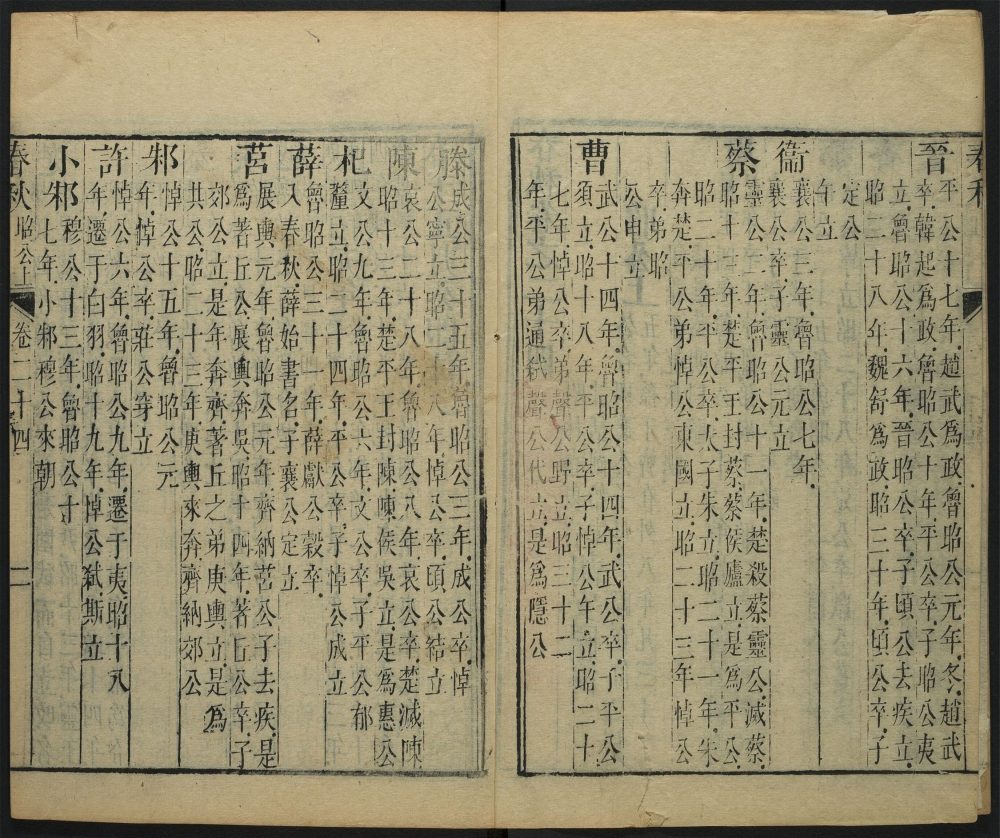 春秋
晉 平公十七年.趙武爲政.魯昭公元年.冬.趙武
卒.韓起爲政.魯昭公十年.平公卒.子昭公夷
立.魯昭公十六年.晉昭公卒.子頃公去疾立.
昭二十八年.魏舒爲政.昭三十年.頃公卒.子
定公
午立
衞 襄公三年.魯昭公七年.
襄公卒.子靈公元立
蔡 靈公二年.魯昭公十一年.楚殺蔡靈公.滅蔡.
昭十三年.楚平王封蔡.蔡侯廬立.是爲平公.
昭二十年.平公卒.太子朱立.昭二十一年.朱
奔楚.平公弟悼公東國立.昭二十三年.悼公
卒.弟昭
公申立
曹 武公十四年.魯昭公十四年.武公卒.子平公
須立.昭十八年.平公卒.子悼公午立.昭二十
七年.悼公卒.弟聲公野立.昭三十二
年.平公弟通弑聲公代立.是爲隱公
滕 成公三十五年.魯昭公三年.成公卒.悼
公寧立.昭二十八年.悼公卒.頃公結立
陳 哀公二十八年.魯昭公八年.哀公卒.楚滅陳.
昭十三年.楚平王封陳.陳侯吳立.是爲惠公
杞 文公九年.魯昭公六年.文公卒.子平公郁
釐立.昭二十四年.平公卒.子悼公成立
薛 魯昭公三十一年.薛獻公穀卒.
入春秋.薛始書名.子襄公定立
莒 展輿元年.魯昭公元年.齊納莒公子去疾.是
爲著丘公.展輿奔吳.昭十四年.著丘公卒.子
郊公立.是年奔齊.著丘之弟庚輿立.是爲
共公.昭二十三年.庚輿來奔.齊納郊公
邾 悼公十五年.魯昭公元
年.悼公卒.莊公穿立
許 悼公六年.魯昭公九年.遷于夷.昭十八
年.遷于白羽.昭十九年.悼公弑.斯立
小邾 穆公十三年.魯昭公十
七年.小邾穆公來朝
春秋 昭公上 卷二十四 二